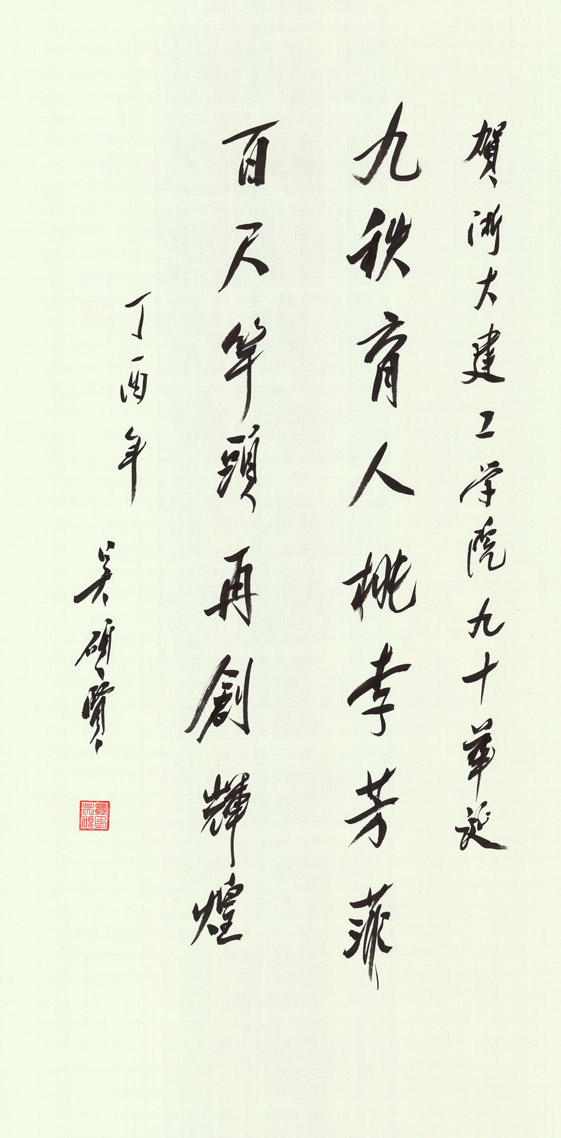 贺浙大建工学院九十华诞
九秩育人桃李芳菲
百尺竿頭再創輝煌
丁酉年
吴硕贤